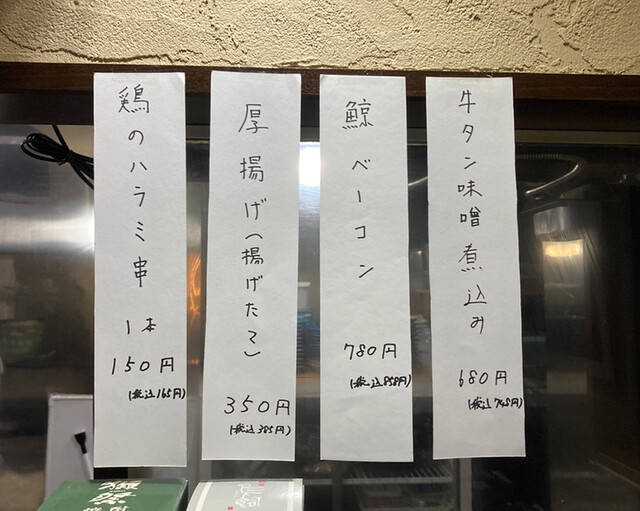 牛タン味噌煮込み
680円
(税込748円)
鯨ベーコン
780円
(税込858円)
厚揚げ(揚げたて)
350円
(税込385円)
鶏のハラミ串
1本
150円
(税込165円)